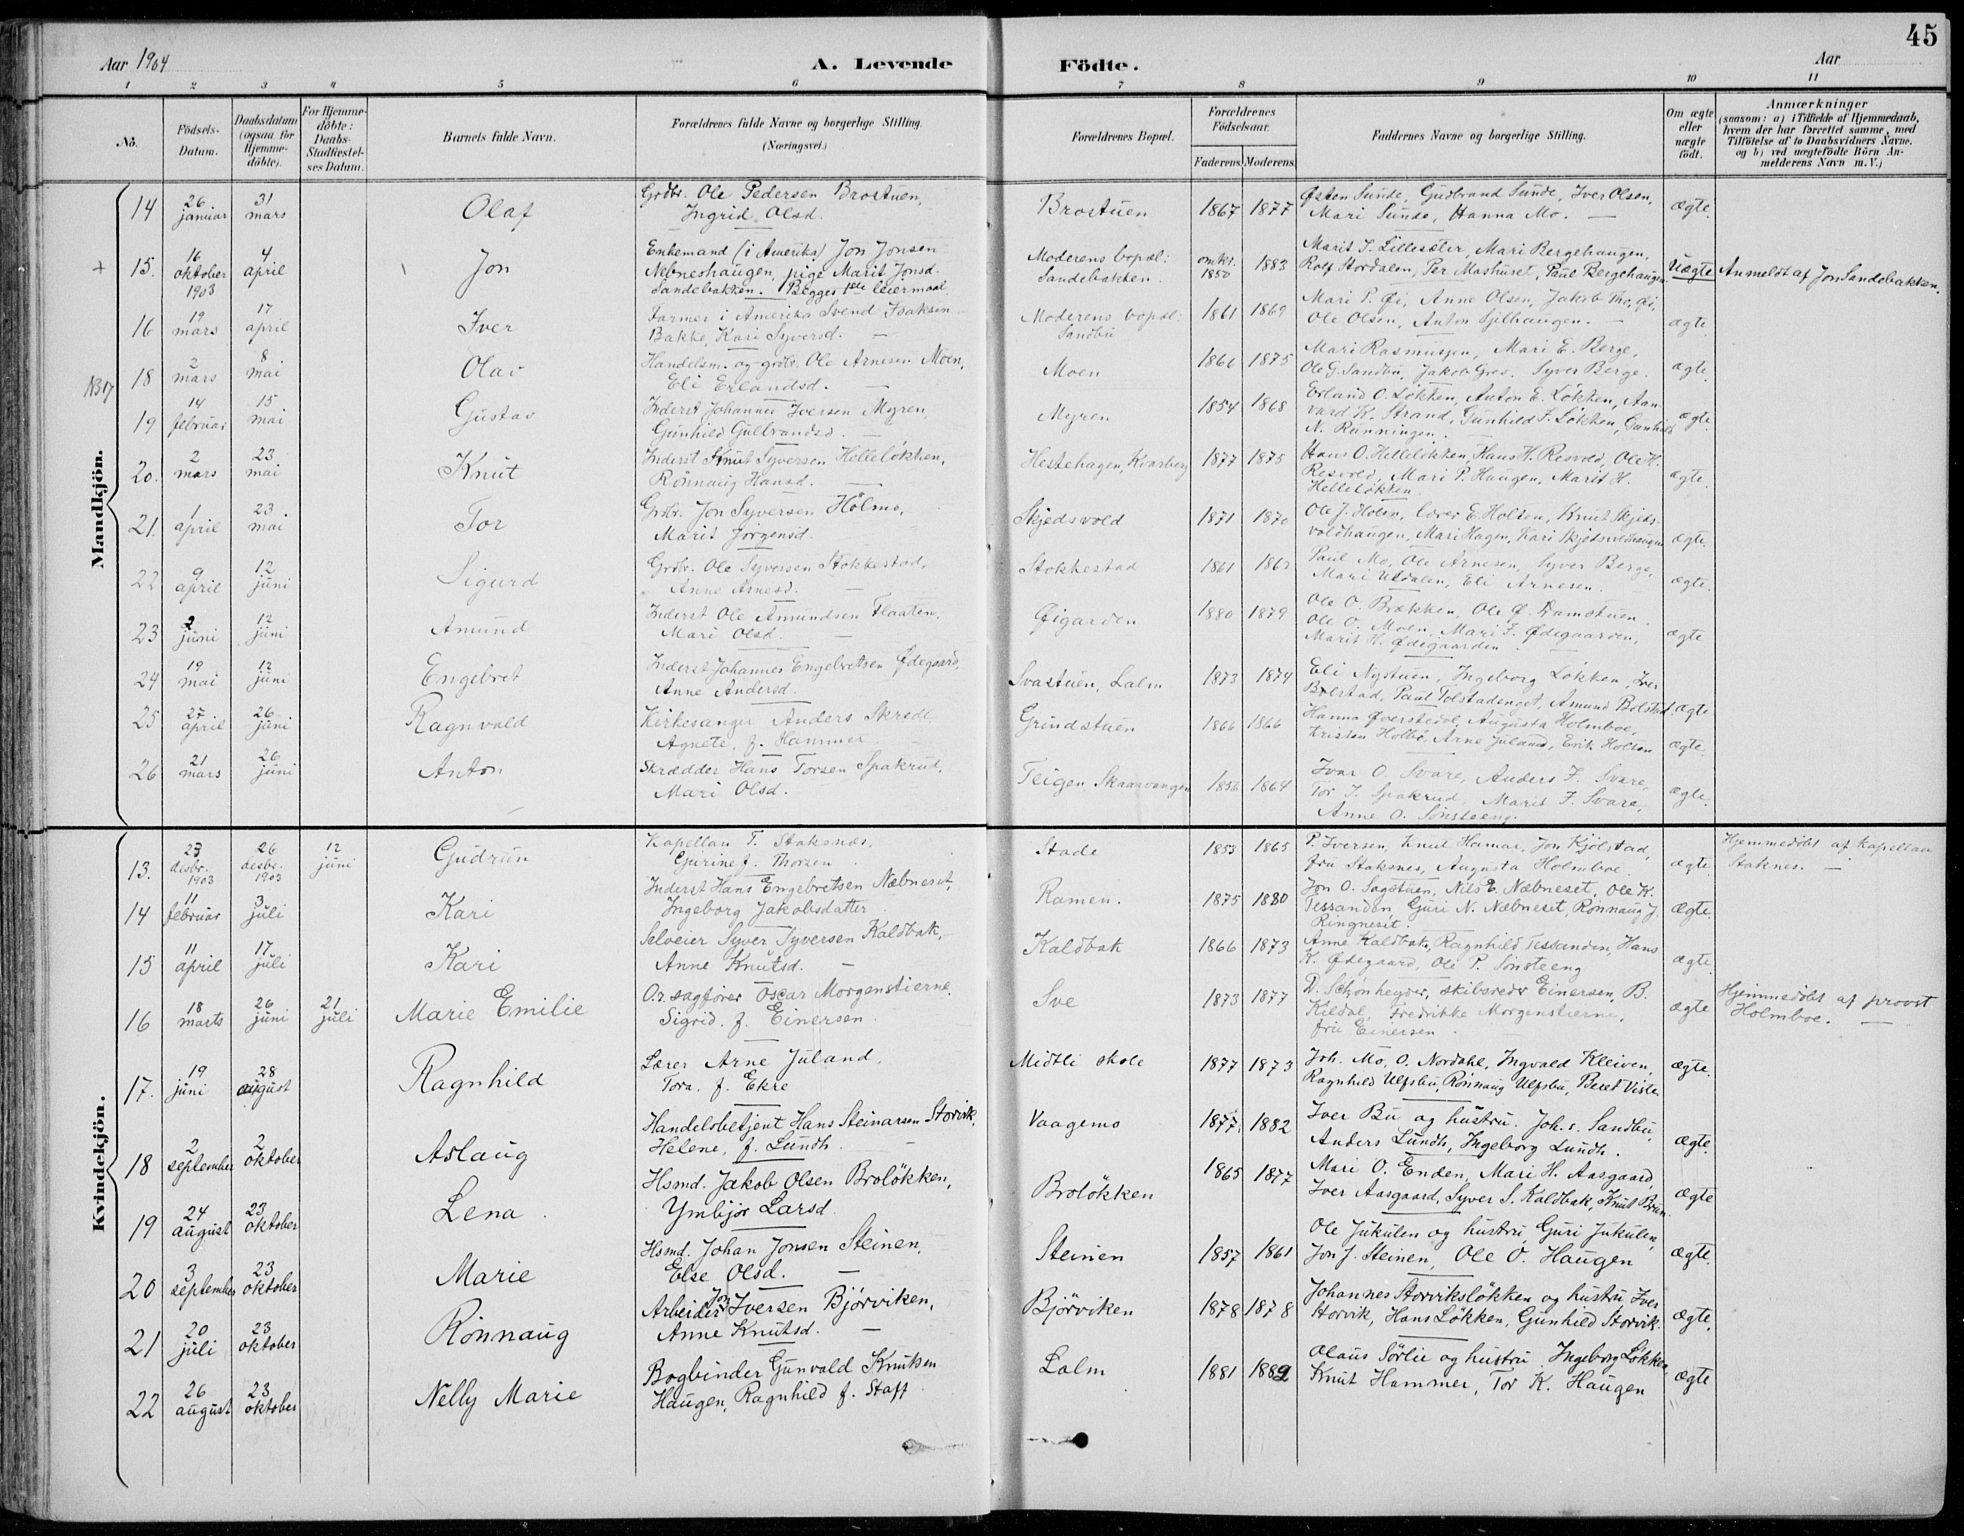 45
Aar 1904
A. Levende Födte.
Aar
1 2 3 4 5 6 7 8 9 10 11
No.
Födsels-Datum.
Daabsdatum (ogsaa for Hjemmedöbte).
For Hjemmedöbte: Daabs-Stadfæstelses Datum.
Barnets fulde Navn.
Forældrenes fulde Navne og borgerlige Stilling.
(Næringsvei.)
Forældrenes Bopæl.
Forældrenes Födselsaar.
Faderens. Moderens.
Faddernes Navne og borgerlige Stilling.
Om ægte eller uægte födt.
Anmærkninger
(saasom: a) i Tilfælde af Hjemmedaab, hvem der har forrettet samme, med Tilföielse af to Daabsvidners Navne, og b) ved uægtefödte Börn Anmelderens Navn m. V.)
Mandkjön.
14 26 januar 31 mars Olaf Grdbr. Ole Pedersen Brostuen, Ingrid Olsd. Brostuen 1867 1877 Østen Sunde, Gudbrand Sunde, Iver Olsen, Mari Sunde, Hanna Mo. ægte.
+ 15. 16 oktober 1903 4 april Jon Enkemand (i Amerika) Jon Jonsen Nebneshaugen, pige Marit Jonsd. Sandebakken. Begges 1ste leiermaal. Moderens bopæl: Sandebakken. omkr. 1850 1883 Marit J. Lillesæter, Mari Bergehaugen, Rolf Hordalen, Per Mashuset, Paul Bergehaugen Uægte Anmeldt af Jon Sandebakken.
16 19 mars 17 april Iver Farmer i Amerika Svend Isaksen Bakke, Kari Syversd. Moderens bopæl: Sandbu 1861 1869 Mari P. Øi, Anne Olsen, Jakob Tho. Øi, Ole Olsen, Anton Seilhaugen. ægte
NB17 18 2 mars 8 mai Olav Handelsm. og grdbr. Ole Arnesen Moen, Eli Erlandsd. Moen 1866 1875 Mari Rasmussen, Mari E. Berge, Ole G. Sandbu, Jakob Grev, Syver Berge. ægte.
19 14 februar 15 mai Gustav Inderst Johannes Iversen Myren, Gunhild Gulbrandsd. Myren 1854 1868 Erland O. Løkken, Anton E. Løkken, Aanvard K. Strand, Gunhild F. Løkken, Gunhild N. Rønningen. ægte.
20. 2 mars 23 mai Knut Inderst Knut Syversen Helleløkken, Rønnaug Hansd. Hestehagen, Kvarberg 1877 1875 Hans O. Helleløkken, Hans H. Resvold, Ole H. Resvold, Mari P. Haugen, Marit H. Helleløkken. ægte.
21. 1 april 23 mai Tor Grdbr. Jon Syversen Holmo, Marit Jörgensd. Skjedsvold 1871 1870 Ole J. Holen, lærer E. Holten, Knut Skjedsvoldhaugen, Mari Hagen, Kari Skjedsvoldhaugen ægte.
22 9 april 12 juni Sigurd Grdbr. Ole Syversen Stokkestad, Anne Arnesd. Stokkestad 1861 Paul Mo, Ole Arnesen, Syver Berge, Mari Utdalen, Eli Arnesen. ægte.
23 2 juni 12 juni Amund Inderst Ole Amundsen Flaaten, Mari Olsd. Øigarden 1880 1879 Ole O. Brækken, Ole Ø. Damstuen, Ole O. Moen, Mari J. Ødegaarden, Marit H. Ødegaarden. ægte
24 19 mai 12 juni Engebret Inderst Johannes Engebretsen Ødegaard, Anne Andersd. Svastuen, Lalm 1873 1874 Eli Nystuen, Ingeborg Løkken, Iver Bolstad, Paul Tolstadenget, Amund Bolstad. ægte
25 27 april 26 juni Ragnvald Kirkesanger Anders Skrede, Agnete, f. Hammer Grindstuen 1866 1866 Hanna Øverstedal, Augusta Holmboe, Kristen Holbø, Arne Juland, Erik Holten ægte.
26 21 mars 26 juni Anton Skrædder Hans Torsen Spakrud, Mari Olsd. Teigen, Skaarvangen 1856 1864 Ivar O. Svare, Anders F. Svare, Tor T. Spakrud, Marit F. Svare, Anne O. Sønsteeng. ægte.
Kvindekjön.
13. 23 desbr. 1903 26 desbr. 1903 12 juni Gudrun Kapellan T. Staksnes, Gurine f. Thorsen Stade 1853 1865 P. Iversen, Knut Hamar, Jon Kjölstad, fru Staksnes, Augusta Holmboe. ægte Hjemmedöbt af kapellan Staknes.
14 11 februar 3 juli Kari Inderst Hans Engebretsen Næbneset, Ingeborg Jakobsdatter Ramen. 1875 1880 Jon O. Sagstuen, Nils E. Næbneset, Ole K. Tessanden, Guri N. Næbneset, Rønnaug J. Ringneset. ægte.
15 11 april 17 juli Kari Selveier Syver Syversen Kaldbak, Anne Knutsd. Kaldbak 1866 1873 Anne Kaldbak, Ragnhild Tessanden, Hans K. Ødegaard, Ole P. Sønsteeng ægte.
16 18 marts 26 juni 21 juli Marie Emilie O.r.sagfører Oscar Morgenstierne. Sigrid, f. Einersen. Sve 1873 1877 D. Schønheyder, skibsreder Einersen, B. Kildal, Fredrikke Morgenstierne, fru Einersen. ægte Hjemmedöbt af provst Holmboe.
17. 19 juni 28 august Ragnhild Lærer Arne Juland, Tora, f. Ekre Midtli skole 1877 1873 Joh. Mo, O. Nordahl, Ingvald Kleiven, Ragnhild Ulfsbu, Rønnaug Ulfsbu, Beret Viste ægte.
18 2 september 2 oktober Aslaug Handelsbetjent Hans Steinarsen Storvik, Helene, f. Lundh. Vaagemo 1877 1882 Iver Bu og hustru. Joh. s. Sandbu, Anders Lundh, Ingeborg Lundh. ægte.
19 24 august 23 oktober Lena. Hsmd. Jakob Olsen Broløkken, Ymbjør Larsd. Broløkken 1865 1877 Mari O. Enden, Mari H. Aasgaard, Iver Aasgaard, Syver S. Kaldbak, Knut Brun. ægte
20 3 september 23 oktober Marie Hsmd. Johan Jonsen Steinen, Else Olsd. Steinen 1857 1861 Ole Jukulen og hustru, Guri Jukulen, Jon J. Steinen, Ole O. Haugen ægte.
21 20 juli 23 oktober Rønnaug Arbeider Jon Iversen Bjørviken, Anne Knutsd. Bjørviken 1878 1878 Johannes Storviksløkken og hustru, Iver Storvik, Hans Løkken, Gunhild Storvik. ægte.
22 26 august 23 oktober Nelly Marie Bogbinder Gunvald Knutsen Haugen, Ragnhild f. Staff Lalm 1881 1882 Olaus Sørlie og hustru, Ingeborg Løkken, Knut Hammer, Tor K. Haugen ægte